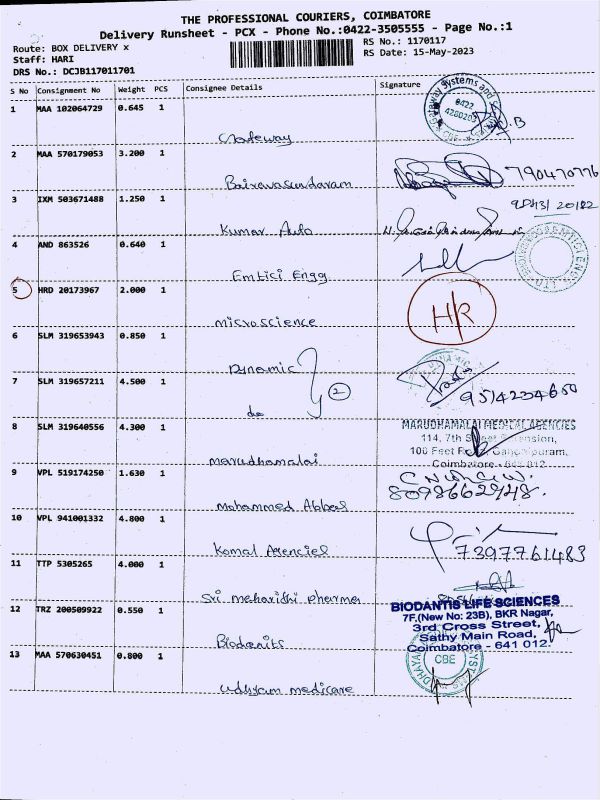 THE PROFESSIONAL COURIERS, COIMBATORE
Delivery Runsheet - PCX - Phone No.:0422-3505555 - Page No.:1
Route: BOX DELIVERY x
RS No.: 1170117
Staff: HARI
RS Date: 15-May-2023
DRS No.: DCJB117011701
S No Consignment No Weight PCS Consignee Details Signature
1 MAA 102064729 0.645 1
Gateway
Gateway Systems and
0422
CBE
2 MAA 570179053 3.200 1
Bairavasundaram
790470776
3 IXM 503671488 1.250 1
Kumar Auto
4 AND 863526 0.640 1
Emtici Engg
5 HRD 20173967 2.000 1
microscience
H/R
6 SLM 319653943 0.850 1
Dynamic
2
7 SLM 319657211 4.500 1
do
9514234650
8 SLM 319640556 4.300 1
marudhamalai
MARUDHAMALAI MEDICAL AGENCIES
114, 7th Street Extension,
100 Feet Road, Gandhipuram,
Coimbatore - 641 012
9 VPL 519174250 1.630 1
Mohammed Abbas
8098662948.
10 VPL 941001332 4.800 1
Komal Agencies
7397761483
11 TTP 5305265 4.000 1
Sri maharishi pharma
12 TRZ 200509922 0.550 1
Biodantis
BIODANTIS LIFE SCIENCES
7F,(New No: 23B), BKR Nagar,
3rd Cross Street,
Sathy Main Road,
Coimbatore - 641 012.
13 MAA 570630451 0.800 1
Udhyam medicare
CBE